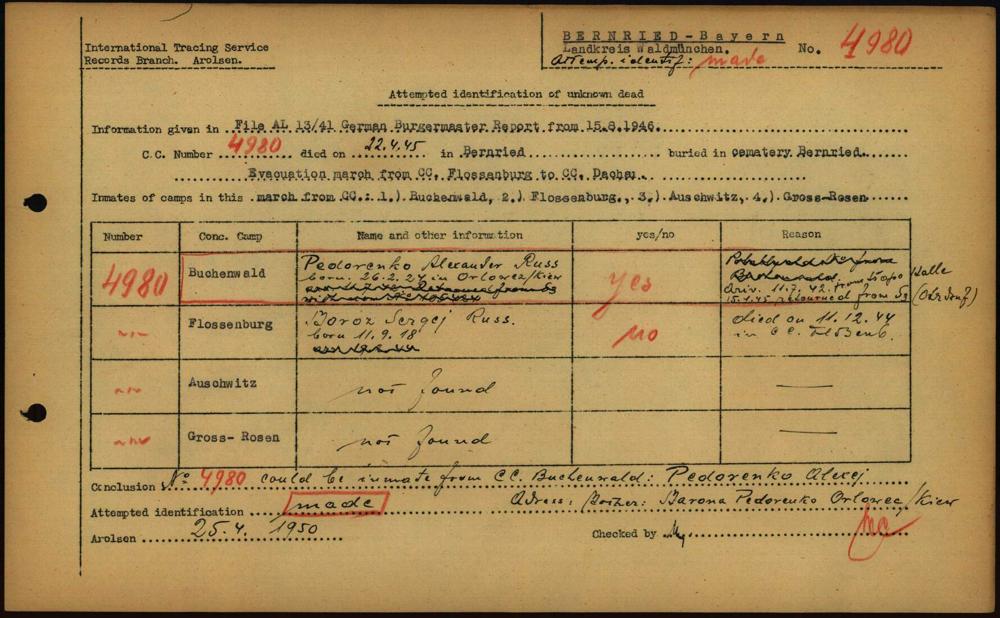 International Tracing Service
Records Branch. Arolsen.
BERNRIED-Bayern
Landkreis Waldmünchen.
No. 4980
Attemp. identif: made
Attempted identification of unknown dead
Information given in File AL 13/41 German Burgermaster Report from 15.8.1946.
C.C. Number 4980 died on 22.4.45 in Bernried buried in cematery Bernried.
Evacuation march from CC. Flossenburg to CC. Dachau.
Inmates of camps in this march from CC.: 1.) Buchenwald, 2.) Flossenburg., 3.) Auschwitz, 4.) Gross-Rosen
Number Conc. Camp Name and other information yes/no Reason
4980 Buchenwald
Pedorenko Alexander Russ
born: 26.2.24 in Orlowez/Kiew
yes
Ariv. 11.7.42. from Stapo Halle
15.1.45 retourned from S3 (Ohrdruf)
Flossenburg
Boroz Sergej Russ.
born 11.9.18
no
died on 11.12.44
in CC.
Auschwitz not found
Gross-Rosen not found
Conclusion No 4980 could be inmate from CC. Buchenwald: Pedorenko Alexej
Adress: Mother: Barona Pedorenko Orlowec/Kiew
Attempted identification made
Arolsen 25.4.1950
Checked by